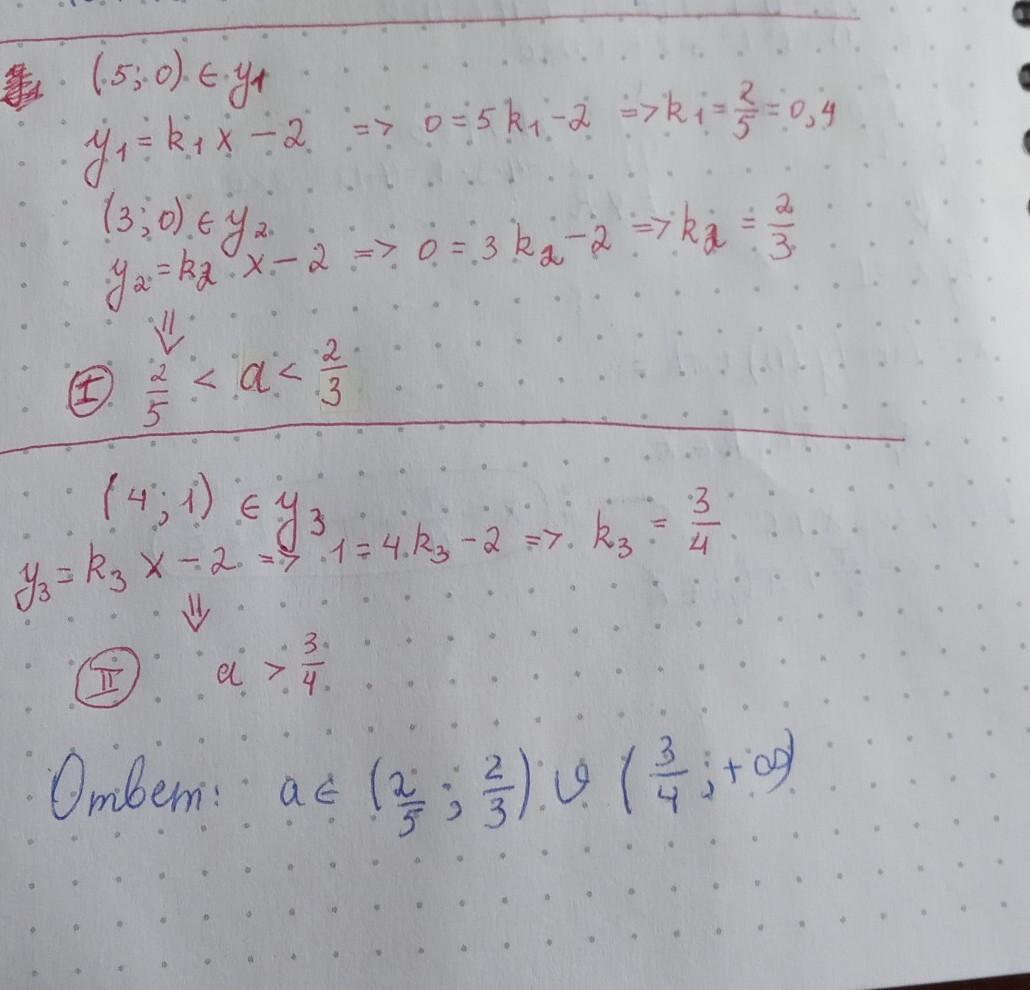 (5; 0) ∈ y₁
y₁ = k₁ x − 2 => 0 = 5 k₁ − 2 => k₁ = 2/5 = 0,4
(3; 0) ∈ y₂
y₂ = k₂ x − 2 => 0 = 3 k₂ − 2 => k₂ = 2/3
⇓
I 2/5 < a < 2/3
(4; 1) ∈ y₃
y₃ = k₃ x − 2 => 1 = 4 · k₃ − 2 => k₃ = 3/4
⇓
II a > 3/4
Ответ: a ∈ (2/5 ; 2/3) ∪ (3/4 ; +∞)